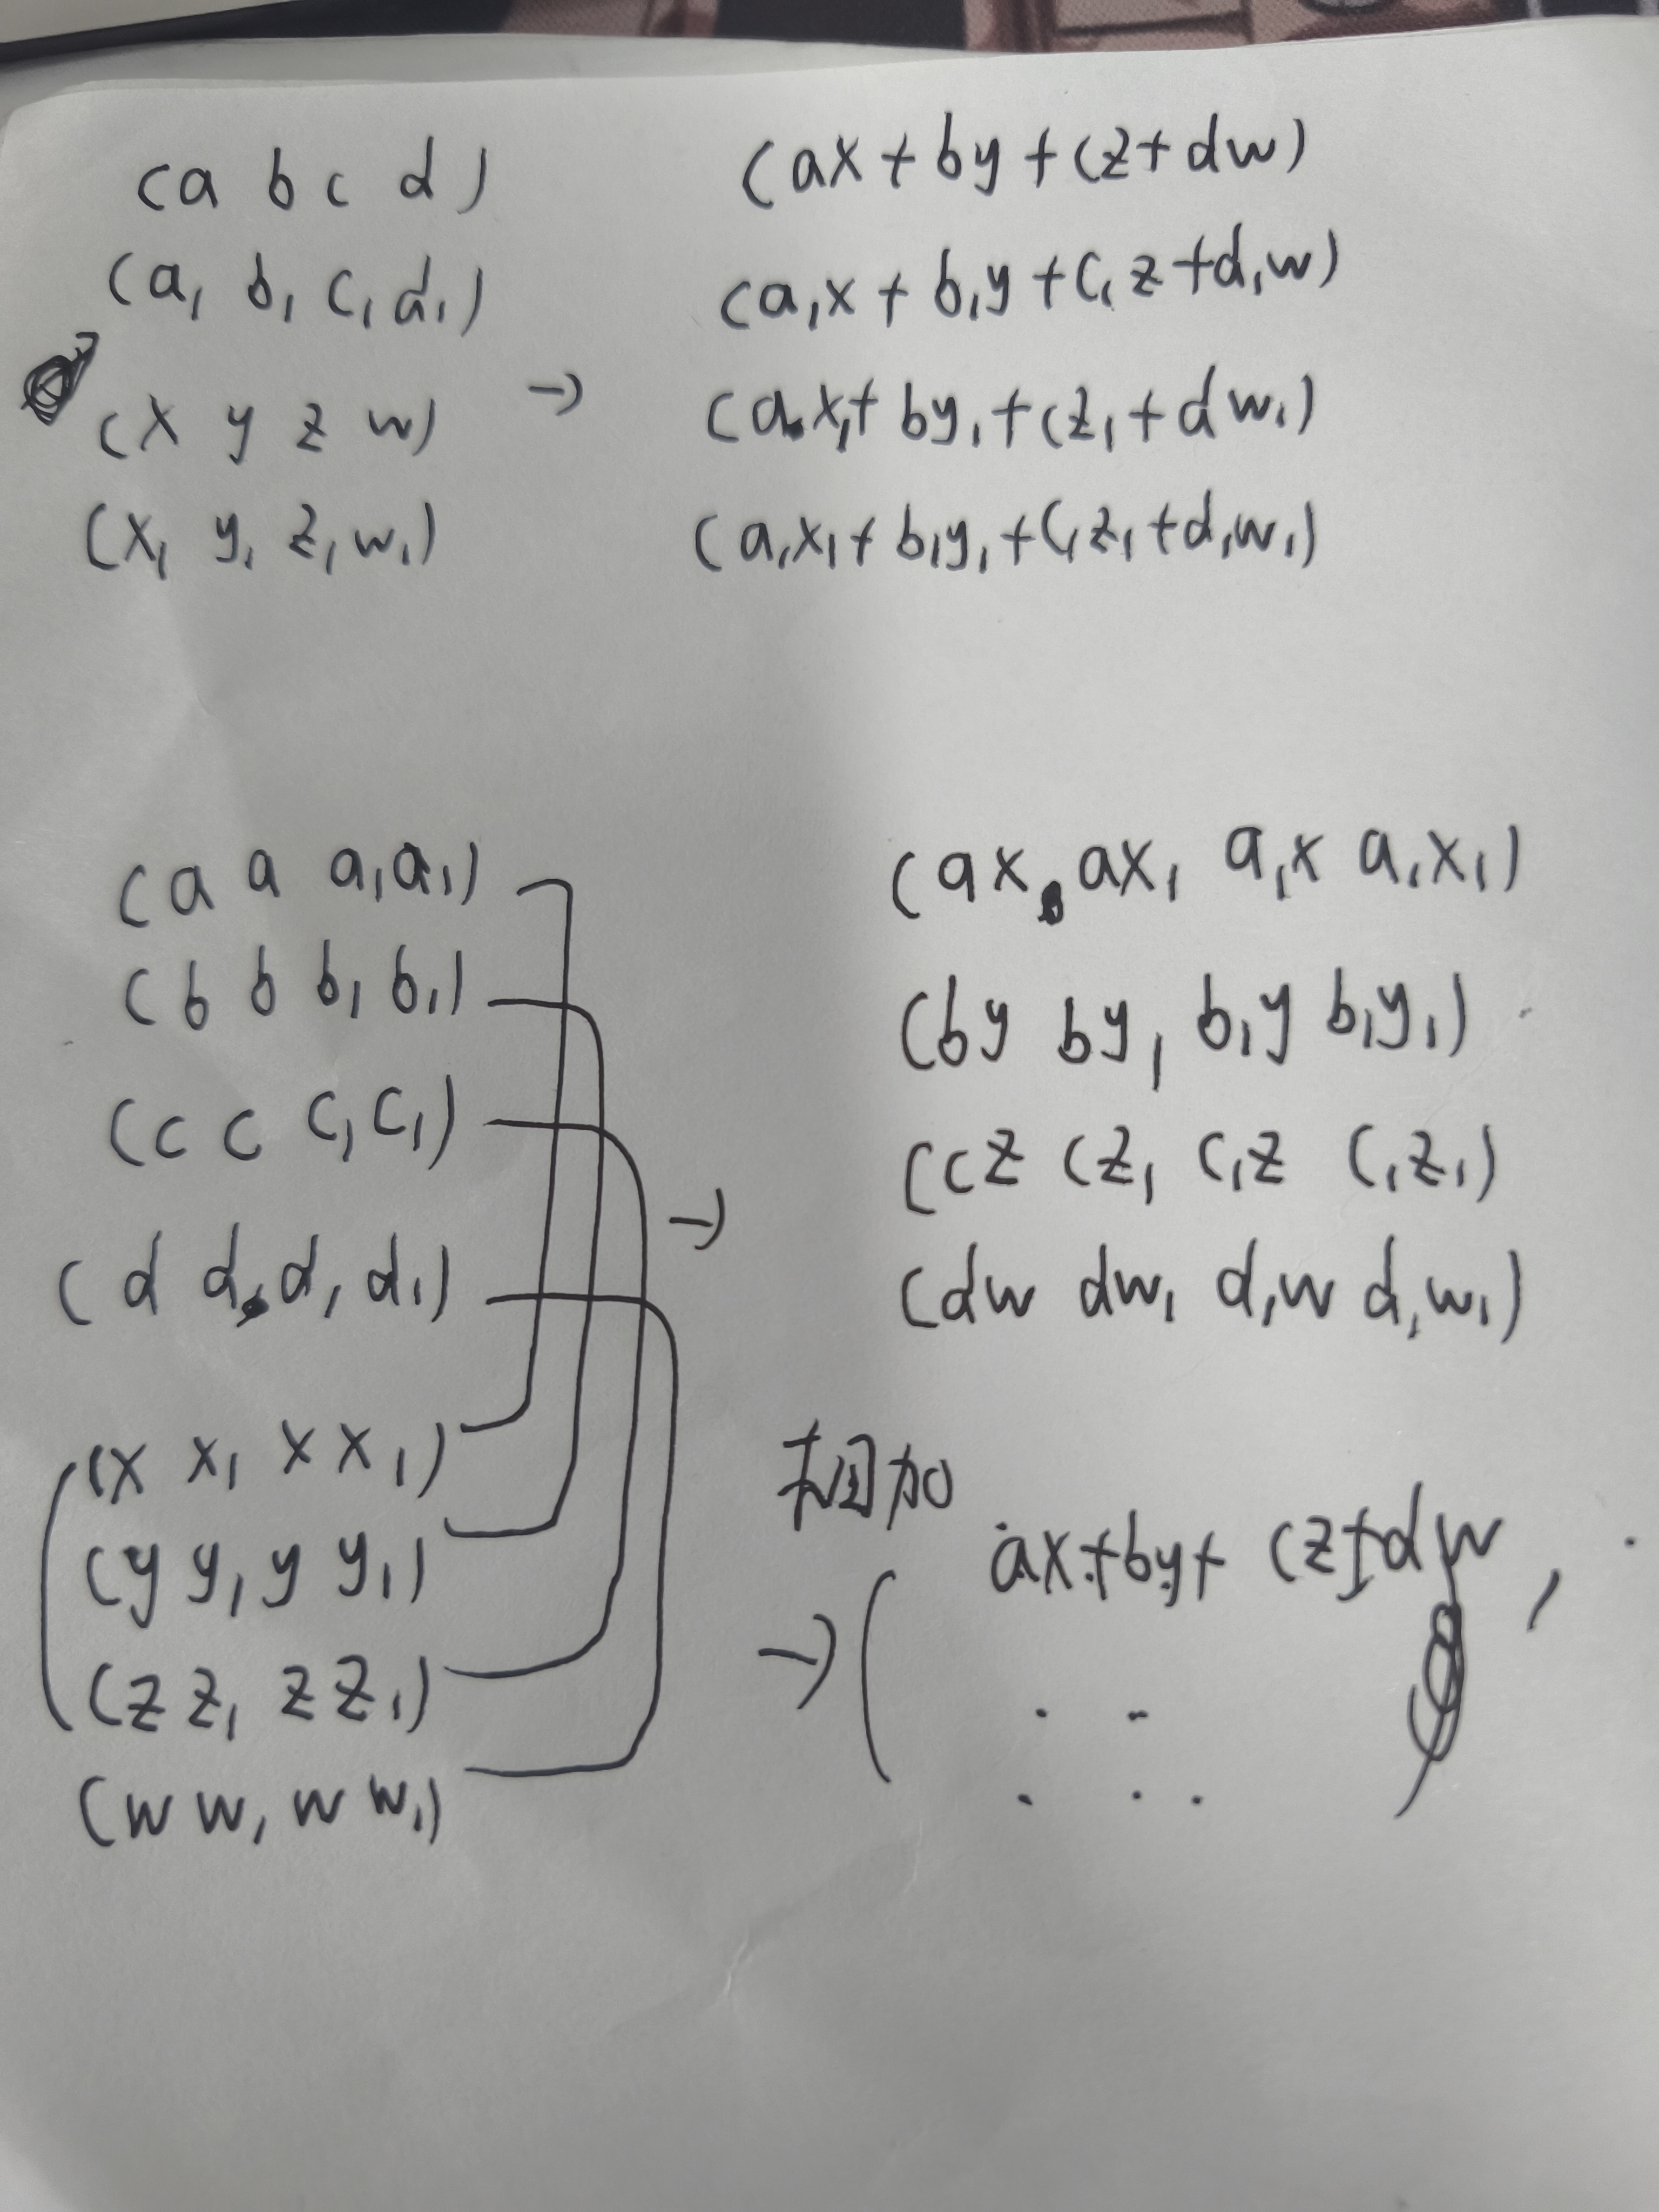 (a b c d)
(a₁ b₁ c₁ d₁)
(x y z w)
(x₁ y₁ z₁ w₁)
→
(ax + by + cz + dw)
(a₁x + b₁y + c₁z + d₁w)
(ax₁ + by₁ + cz₁ + dw₁)
(a₁x₁ + b₁y₁ + c₁z₁ + d₁w₁)
(a a a₁ a₁)
(b b b₁ b₁)
(c c c₁ c₁)
(d d d₁ d₁)
(x x₁ x x₁)
(y y₁ y y₁)
(z z₁ z z₁)
(w w₁ w w₁)
→
(ax ax₁ a₁x a₁x₁)
(by by₁ b₁y b₁y₁)
(cz cz₁ c₁z c₁z₁)
(dw dw₁ d₁w d₁w₁)
相加
→ ( ax + by + cz + dw ,
. . 
. . .